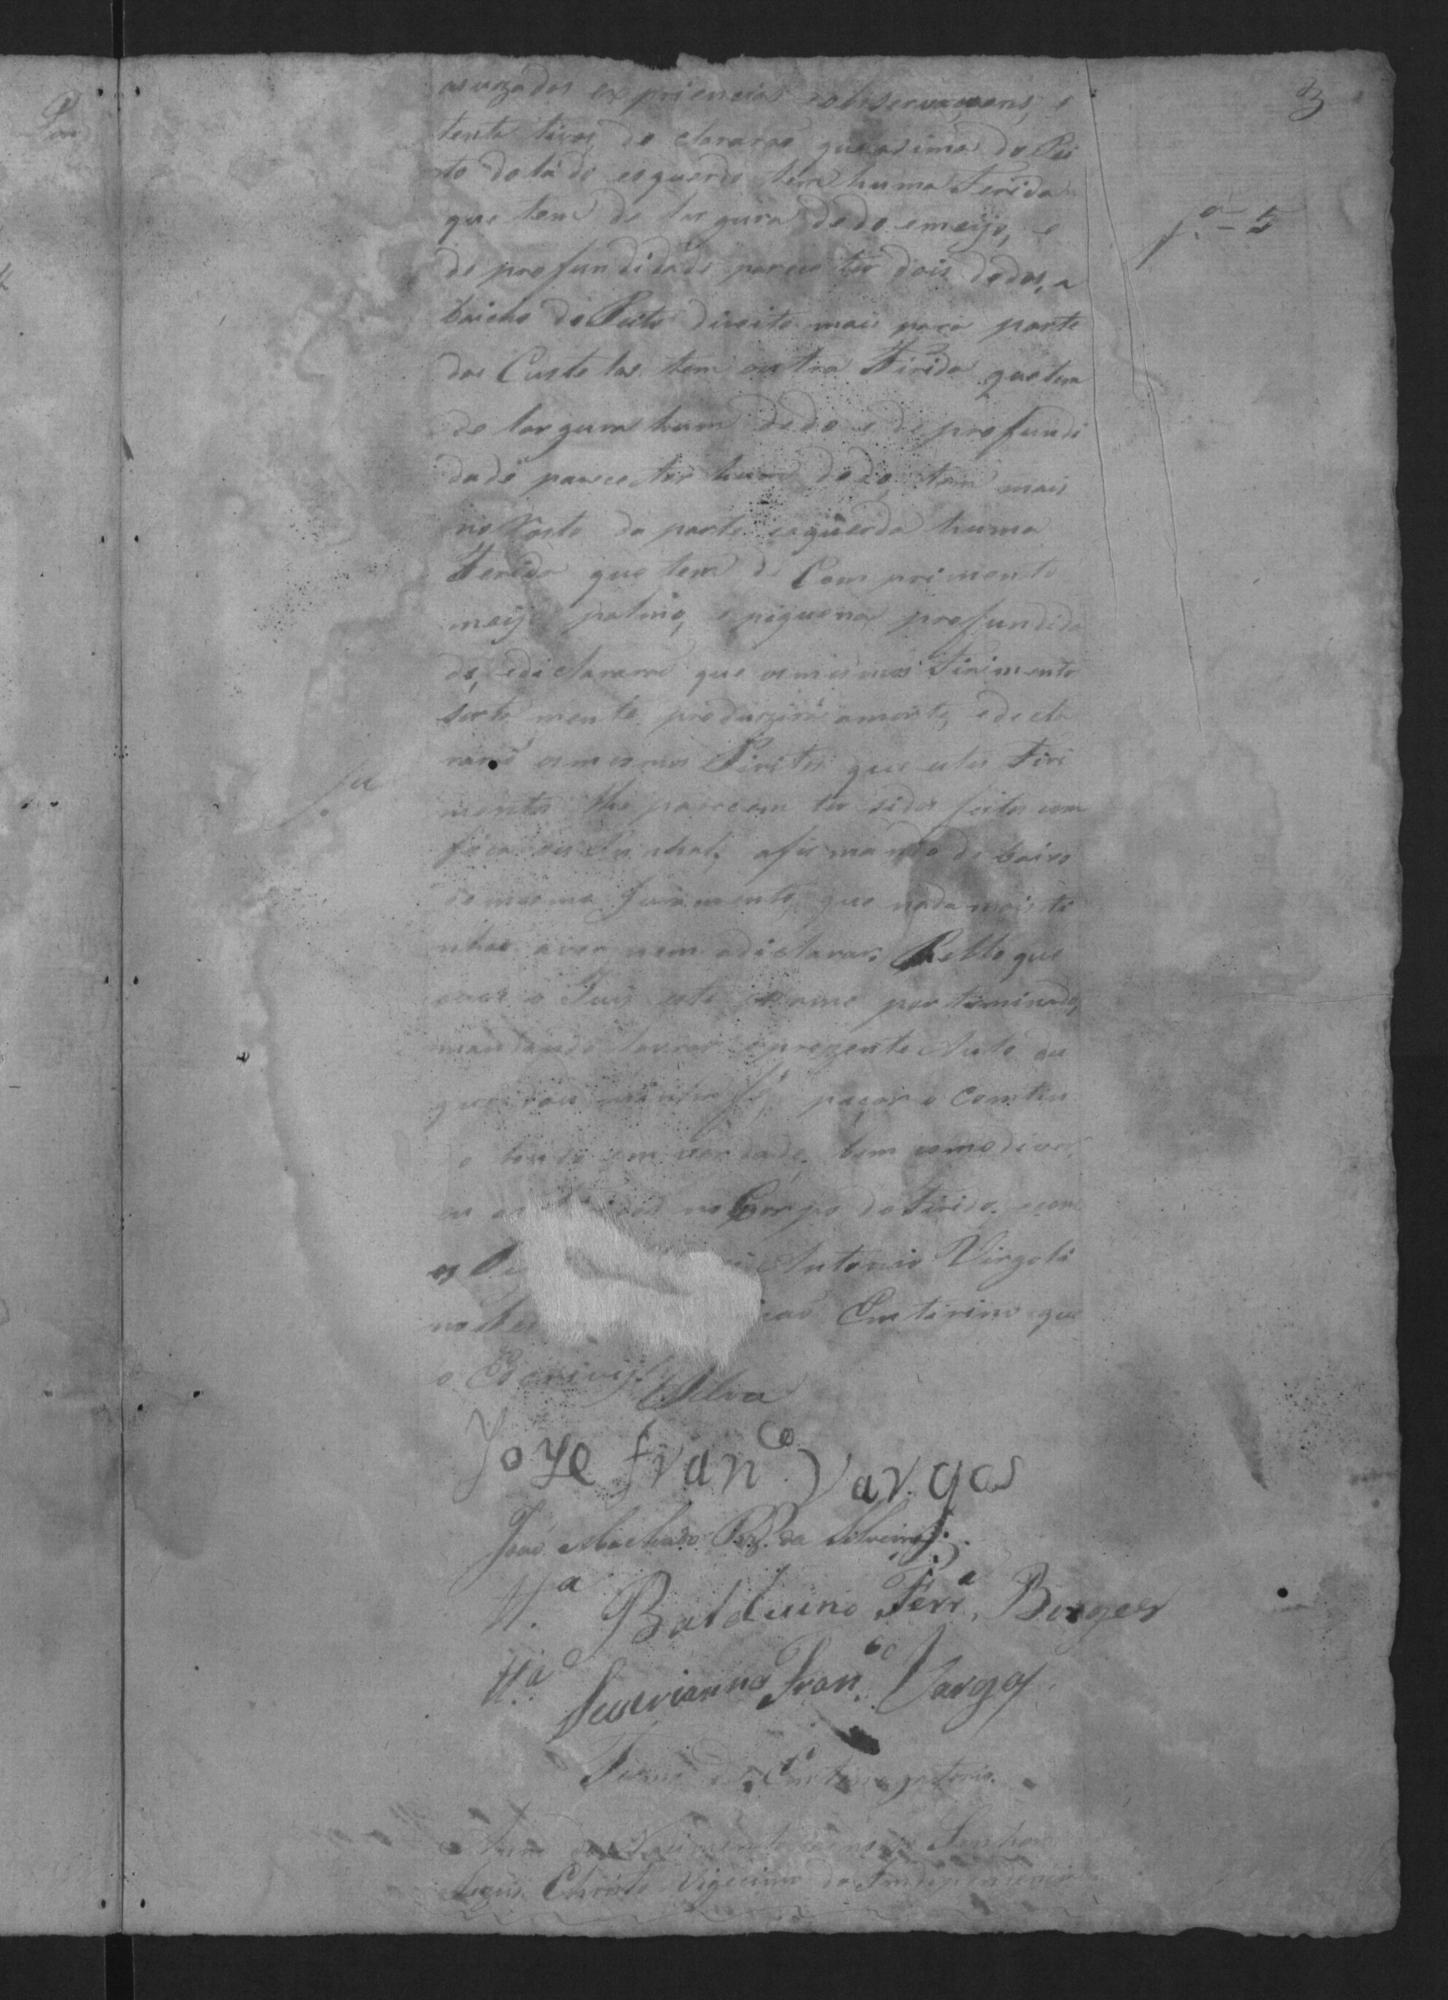 3
as uzadas expriencias e observaçoens, e
tentativas, declararão que asima do Pei
to do lado esquerdo tem huma Ferida
que tem de largura dedo emeijo, e
de profundidade parece ter dois dedos, a
baicho do Peito direito mais para parte
das Custelas tem outra Firida que tem
de largura hum dedo e de profundi
dade parece ter hum dedo, tem mais
no Rosto da parte esquerda huma
Ferida que tem de Comprimento
meijo palmo, e piquena profundida
de, edeclararão que os mesmos Firimento
serta mente produzirão amorte, edecla
rarão osmesmos Piritos que estes Firi
mentos lhe parecem ter sidos feitos com
faca ou Punhal, afirmando de baixo
do mesmo Juramento, que nada mais ti
nhão aver nem adeclarar. Pello que
ouve o Juiz este exame por terminado,
mandando lavrar oprezente Auto do
que dou minha fé, paçar o Contiu
do todo em verdade, bem como diver
no Corpo do Ferido, com
Antonio Virgoli
Enterino que
o Escrivy
Silva
Joze Fran.co Vargas
João Machado da Silveira
T.a Balduino Ferr.a Borges
T.a Severianno Fran.co Vargas
Termo de Enterrogatorio
Anno do Nascimento de nosso Senhor
Jezus Christo Vigecimo da Independencia